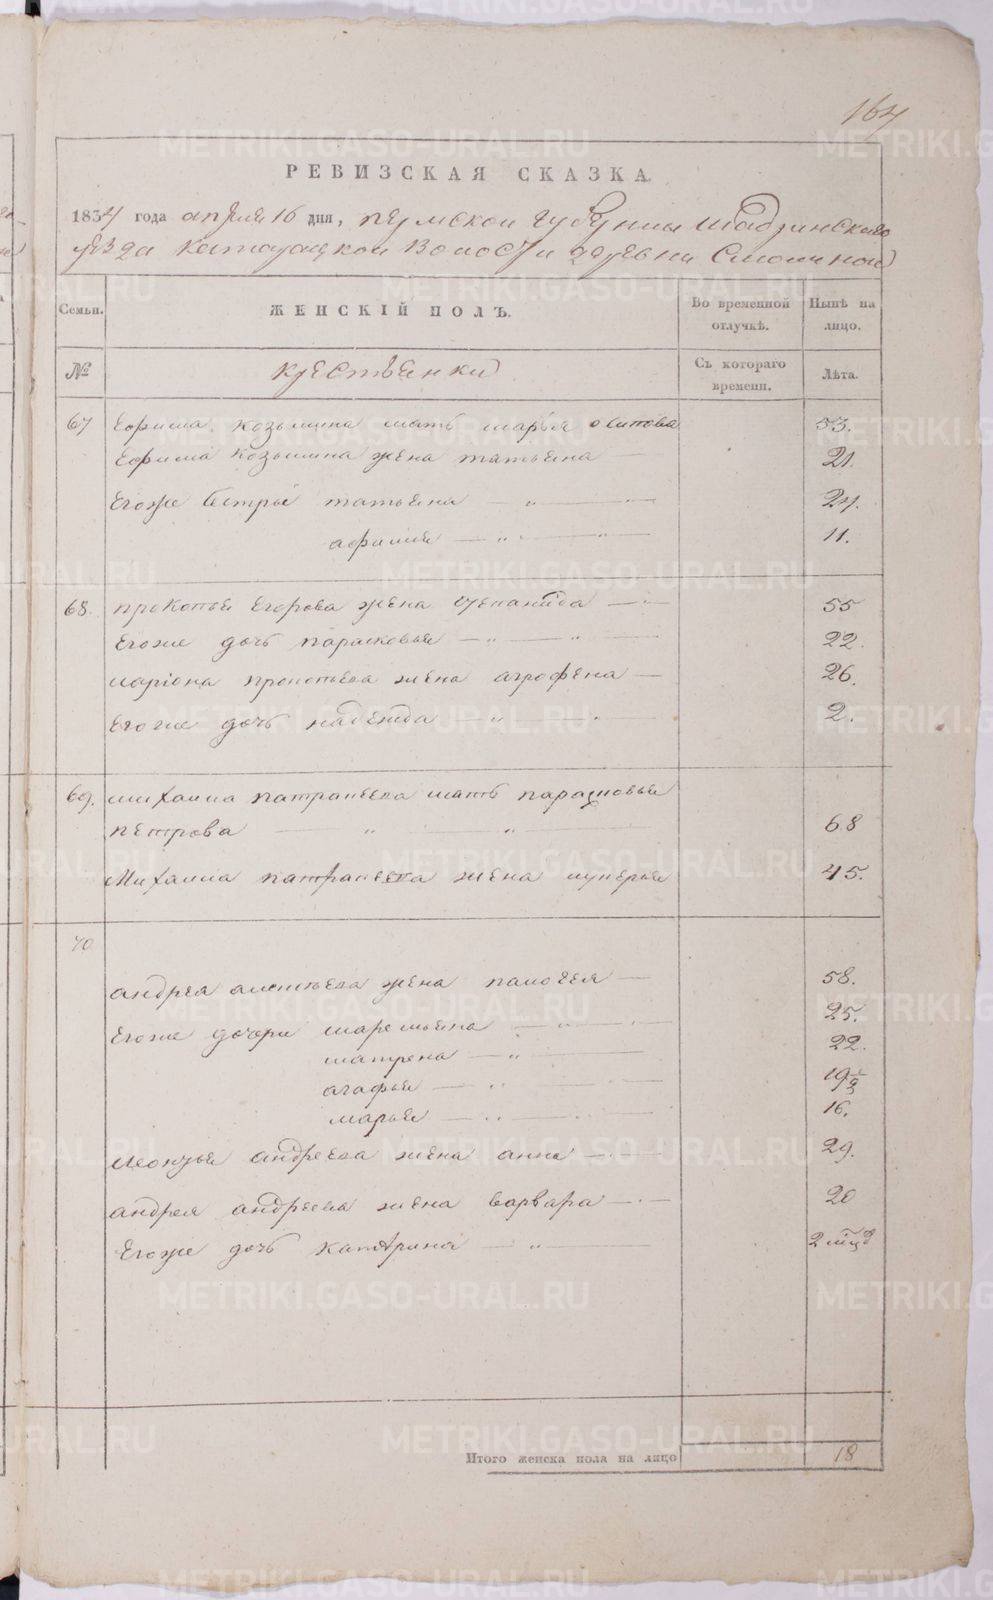 164
РЕВИЗСКАЯ СКАЗКА.
1834 года апреля 16 дня, пермской губернии шадринского
уезда волости деревни
Семьи. ЖЕНСКІЙ ПОЛЪ. Во временной отлучкѣ. Нынѣ на лицо.
№ крестьянки Съ котораго времени. Лѣта.
67 Ефима козьмина мать марья осипова 53.
Ефима козьмина жена татьяна 21.
Егоже сестры татьяна 24.
афимия 11.
68. прокопья Егорова жена степанида 55
Егоже дочь парасковья 22.
ларіона прокопьева жена агрофена 26.
Егоже дочь надежда 2.
69. михаила патракеева мать парасковья
петрова 68
Михаила патракеева жена лукерья 45.
70.
андрея жена 58.
Егоже дочери маремьяна 25.
матрена 22.
агафья 19
марья 16.
леонтья андреева жена анна 29.
андрея андреева жена варвара 20
Егоже дочь катерина 2 мцд
Итого женска пола на лицо 18
METRIKI.GASO-URAL.RU